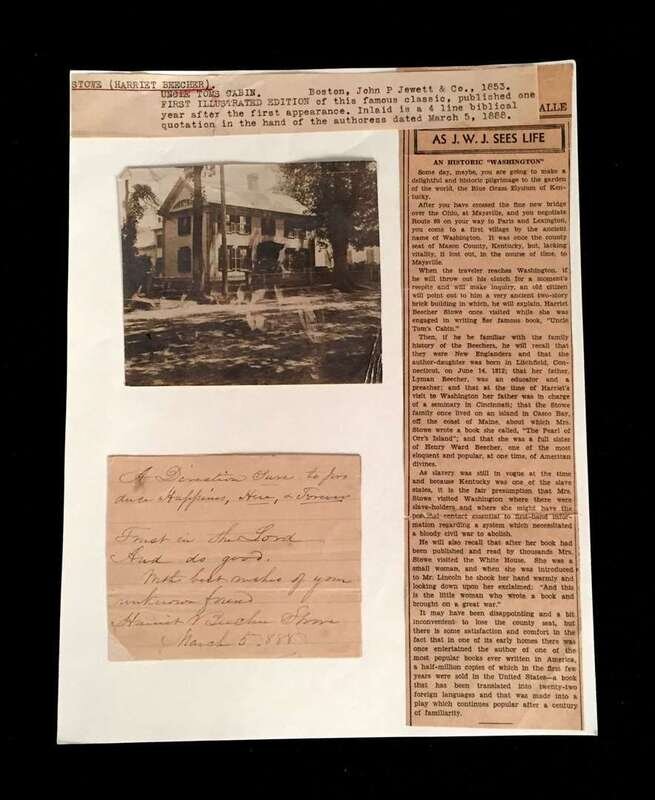 STOWE (HARRIET BEECHER).
UNCLE TOMS CABIN. Boston, John P Jewett & Co., 1853.
FIRST ILLUSTRATED EDITION of this famous classic, published one
year after the first appearance. Inlaid is a 4 line biblical
quotation in the hand of the authoress dated March 5, 1888.
ALLE
AS J. W. J. SEES LIFE
AN HISTORIC "WASHINGTON"
Some day, maybe, you are going to make a
delightful and historic pilgrimage to the garden
of the world, the Blue Grass Elysium of Ken-
tucky.
After you have crossed the fine new bridge
over the Ohio, at Maysville, and you negotiate
Route 68 on your way to Paris and Lexington,
you come to a first village by the ancient
name of Washington. It was once the county
seat of Mason County, Kentucky, but, lacking
vitality, it lost out, in the course of time, to
Maysville.
When the traveler reaches Washington, if
he will throw out his clutch for a moment's
respite and will make inquiry, an old citizen
will point out to him a very ancient two-story
brick building in which, he will explain, Harriet
Beecher Stowe once visited while she was
engaged in writing her famous book, "Uncle
Tom's Cabin."
Then, if he be familiar with the family
history of the Beechers, he will recall that
they were New Englanders and that the
author-daughter was born in Litchfield, Con-
necticut, on June 14, 1812; that her father,
Lyman Beecher, was an educator and a
preacher; and that at the time of Harriet's
visit to Washington her father was in charge
of a seminary in Cincinnati; that the Stowe
family once lived on an island in Casco Bay,
off the coast of Maine, about which Mrs.
Stowe wrote a book she called, "The Pearl of
Orr's Island"; and that she was a full sister
of Henry Ward Beecher, one of the most
eloquent and popular, at one time, of American
divines.
As slavery was still in vogue at the time
and because Kentucky was one of the slave
states, it is the fair presumption that Mrs.
Stowe visited Washington where there were
slave-holders and where she might have the
personal contact essential to first-hand infor-
mation regarding a system which necessitated
a bloody civil war to abolish.
He will also recall that after her book had
been published and read by thousands Mrs.
Stowe visited the White House. She was a
small woman, and when she was introduced
to Mr. Lincoln he shook her hand warmly and
looking down upon her exclaimed: "And this
is the little woman who wrote a book and
brought on a great war."
It may have been disappointing and a bit
inconvenient to lose the county seat, but
there is some satisfaction and comfort in the
fact that in one of its early homes there was
once entertained the author of one of the
most popular books ever written in America,
a half-million copies of which in the first few
years were sold in the United States—a book
that has been translated into twenty-two
foreign languages and that was made into a
play which continues popular after a century
of familiarity.
A Direction Sure to pro
duce Happiness, Here, & Forever
Trust in the Lord
And do good.
With best wishes of your
unknown friend
Harriet Beecher Stowe
March 5. 1888